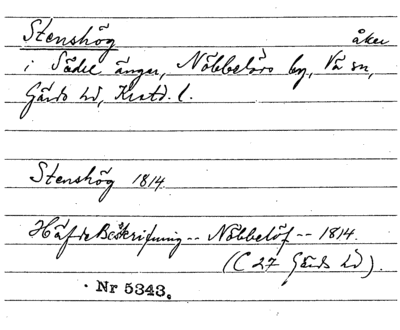 Stenshög åker
i Södre änger, Nöbbelövs by, Vä sn,
Gärds hd, Krstd. l.
Stenshög 1814.
Häfde Beskrifning -- Nöbbelöf -- 1814.
(C 27 Gärds hd).
Nr 5343.